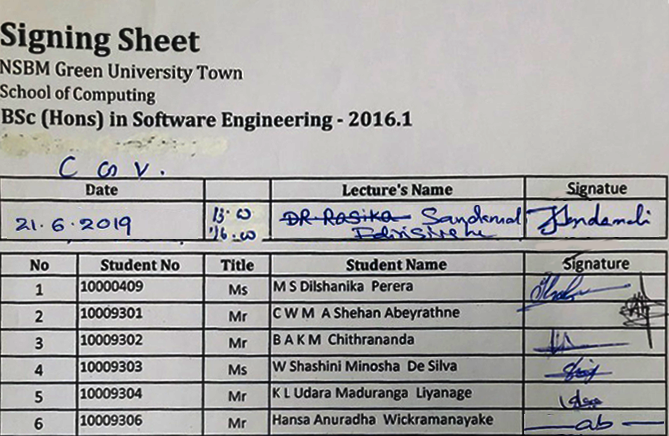 Signing Sheet
NSBM Green University Town
School of Computing
BSc (Hons) in Software Engineering - 2016.1
Date Lecture's Name Signatue
21.6.2019 DR Rasika Sandamal
No Student No Title Student Name Signature
1 10000409 Ms M S Dilshanika Perera
2 10009301 Mr C W M A Shehan Abeyrathne
3 10009302 Mr B A K M Chithrananda
4 10009303 Ms W Shashini Minosha De Silva
5 10009304 Mr K L Udara Maduranga Liyanage
6 10009306 Mr Hansa Anuradha Wickramanayake ab